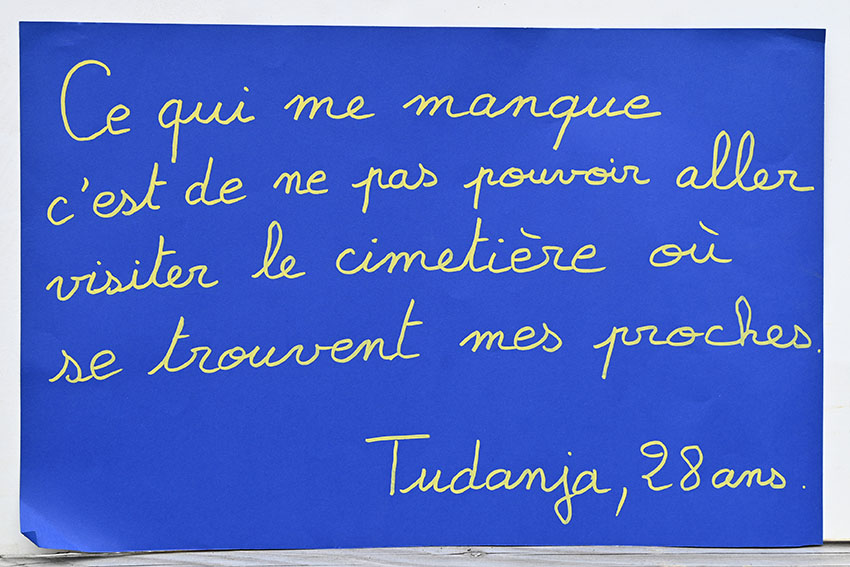 Ce qui me manque
c'est de ne pas pouvoir aller
visiter le cimetière où
se trouvent mes proches.
Tudanja, 28 ans.